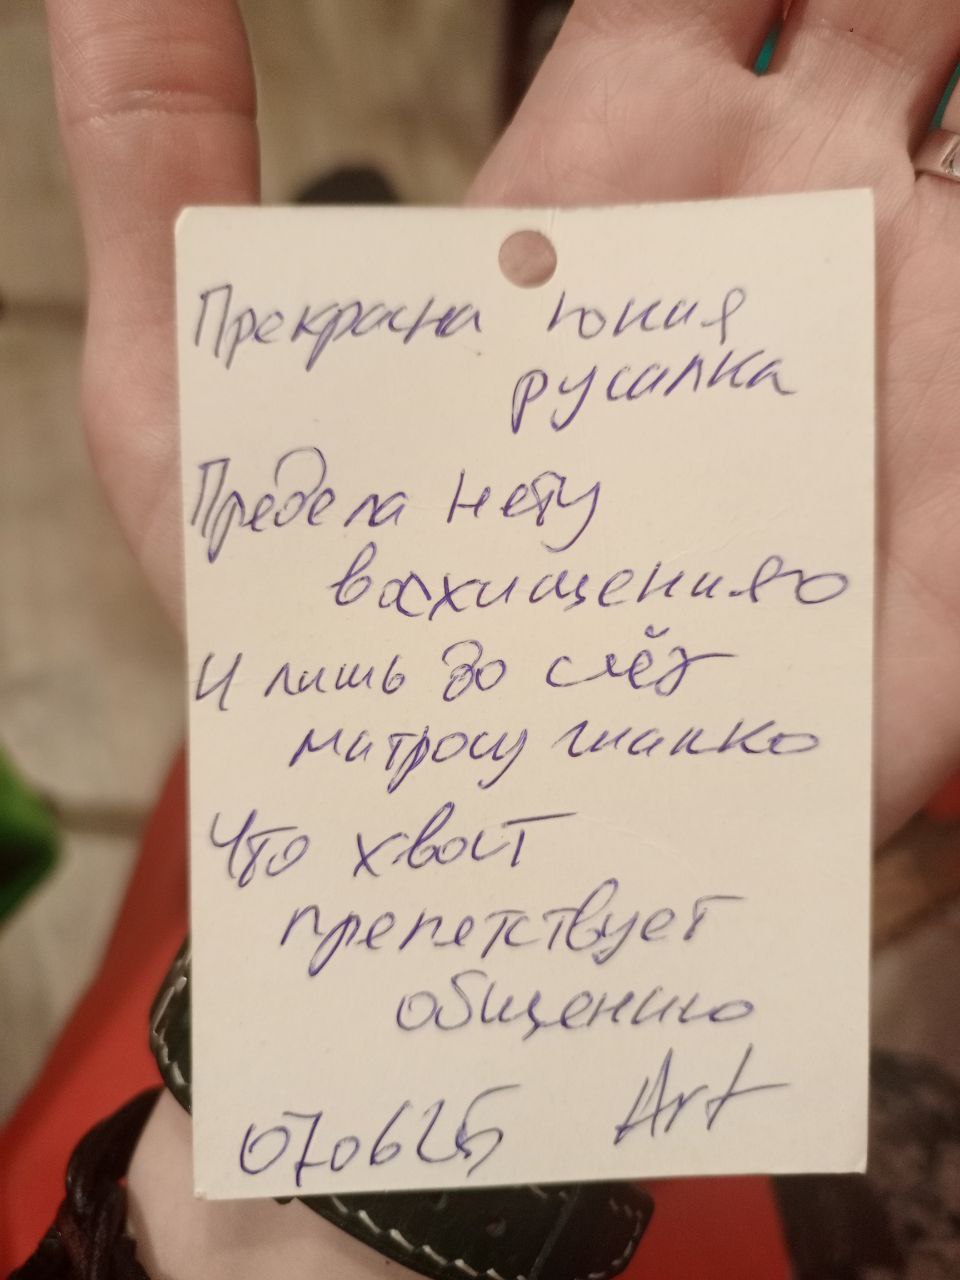 Прекрасна юная
русалка
Предела нету
восхищенияю
И лишь до слёз
матросу жалко
Что хвост
препетствует
общению
070625 Art